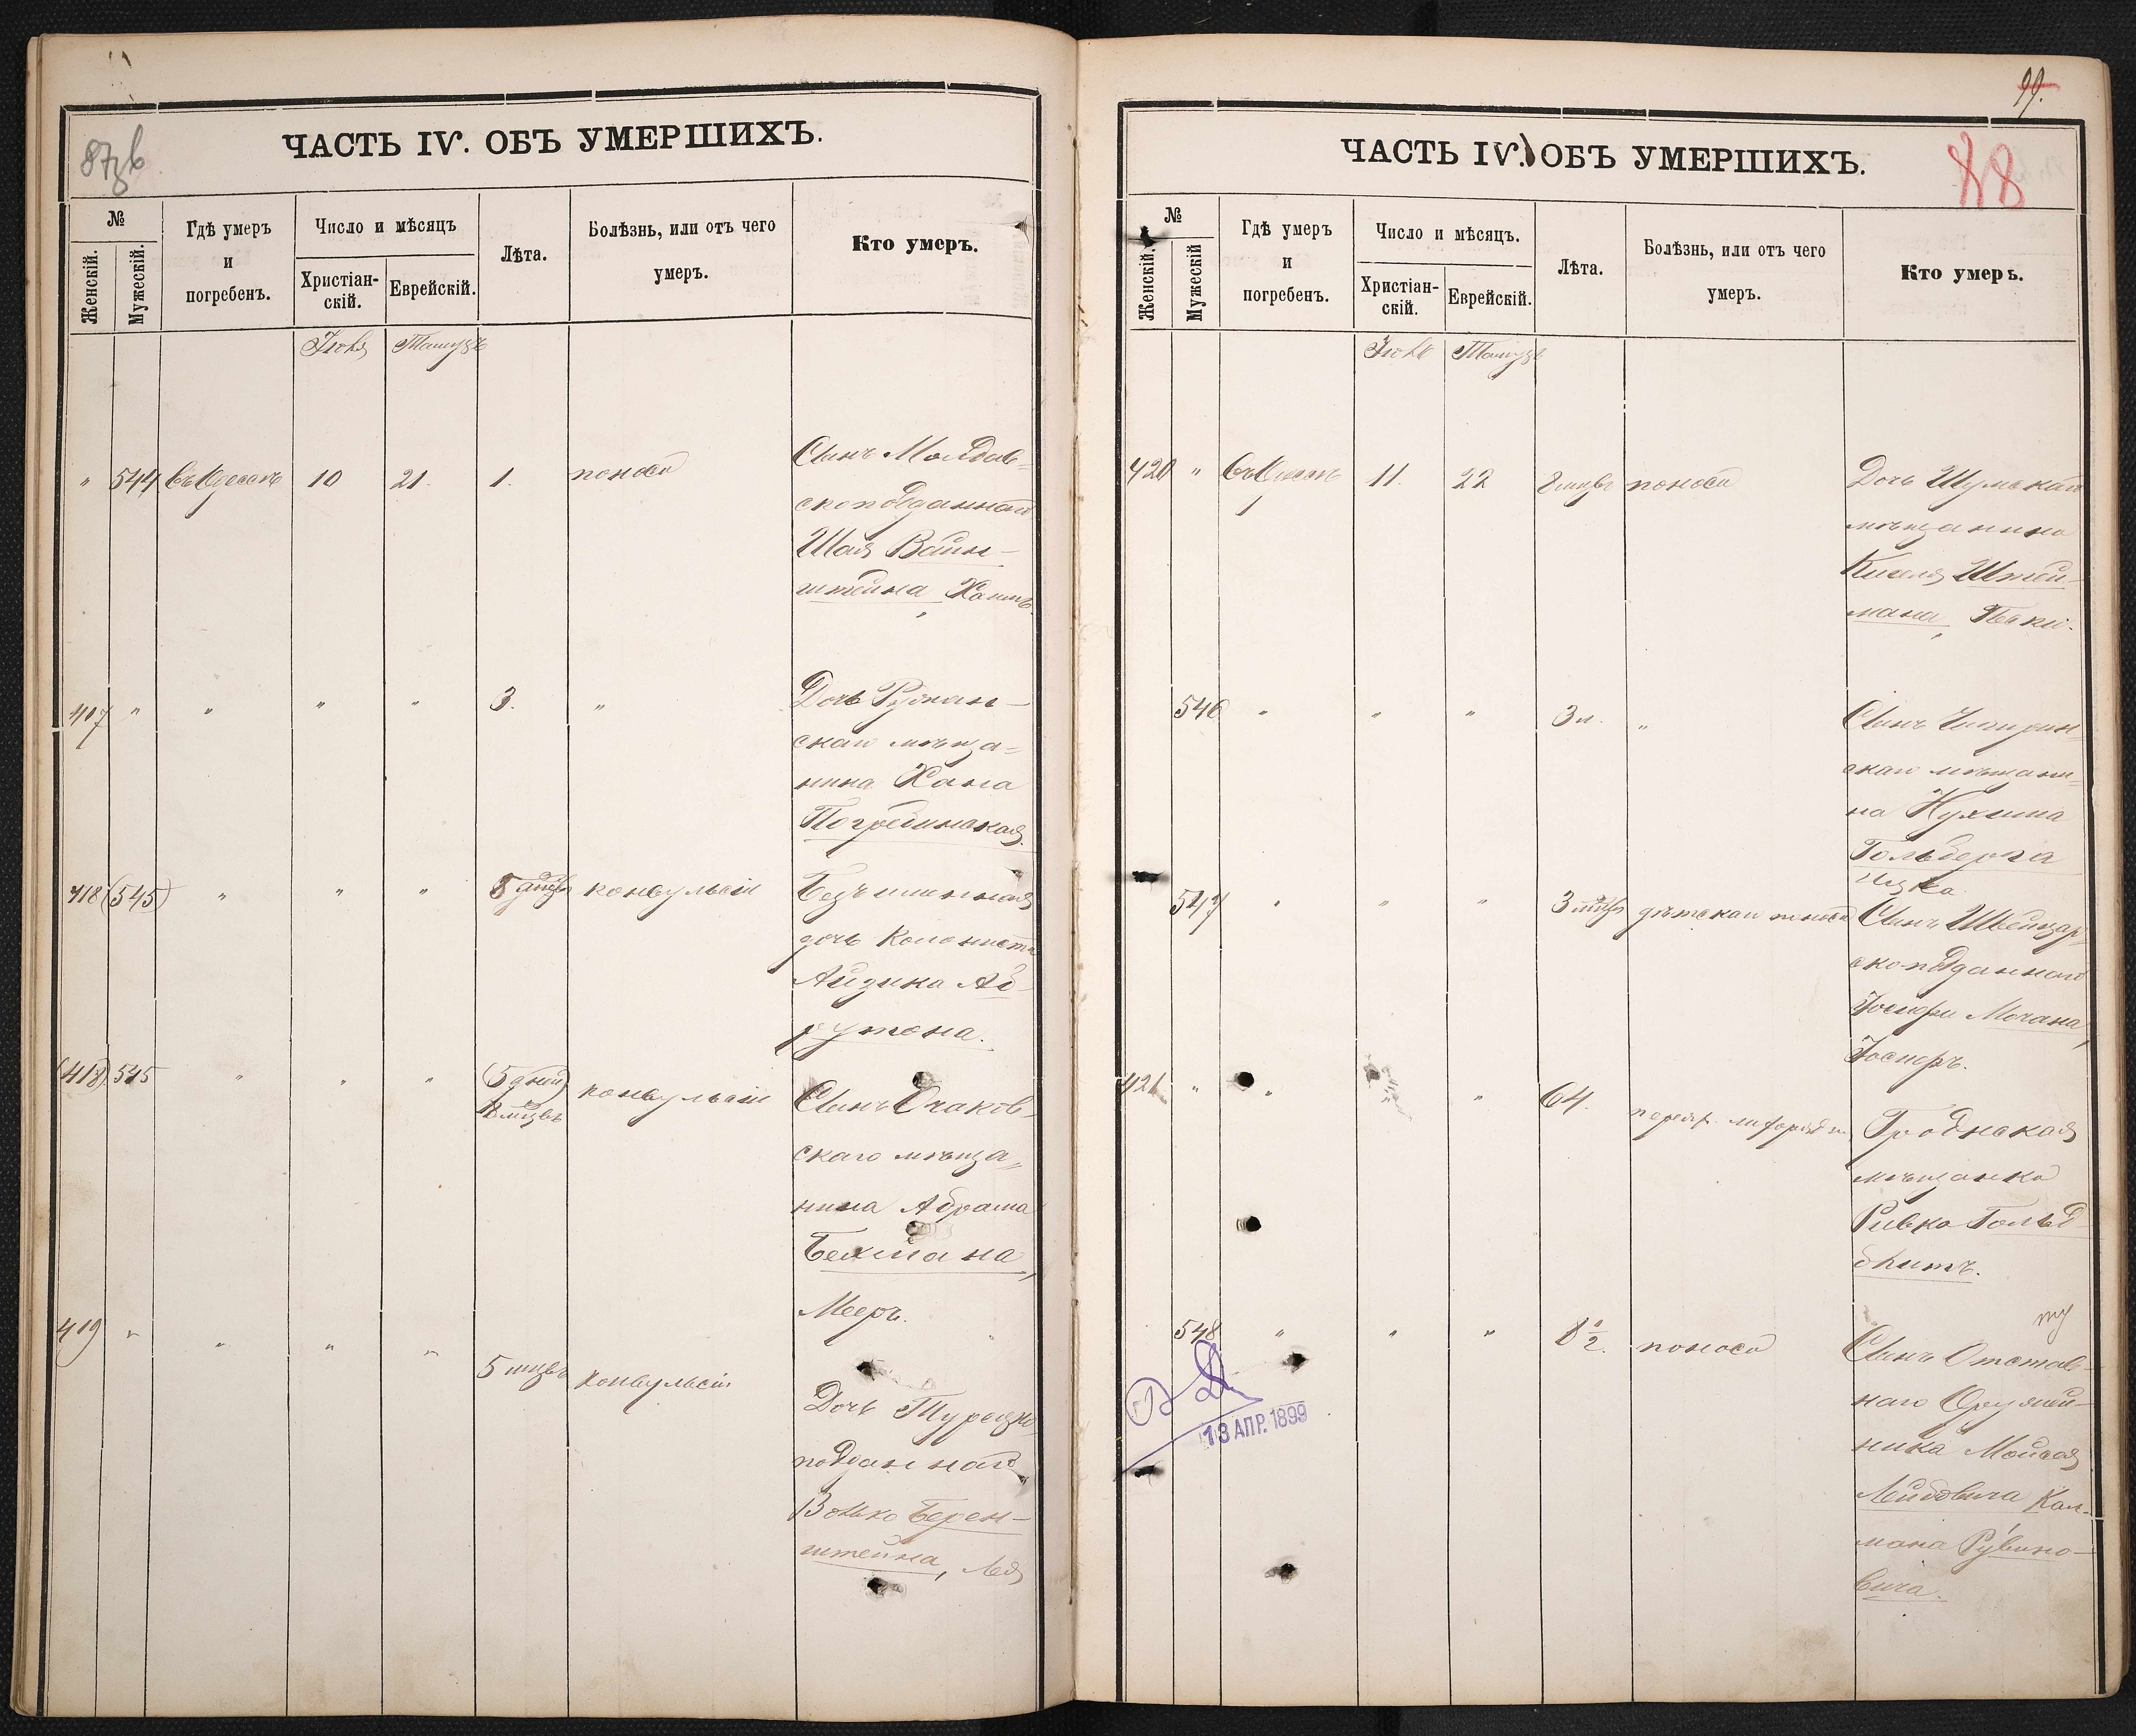 87
ЧАСТЬ IV. ОБЪ УМЕРШИХЪ.
№
Женскій.
Мужескій.
Гдѣ умеръ
и
погребенъ.
Число и мѣсяцъ
Христіан-
скій.
Еврейскій.
Лѣта.
Болѣзнь, или отъ чего
умеръ.
Кто умеръ.
Іюля Тамузъ
" 544 въ Одессѣ 10 21. 1. поносъ
Сынъ Молдав-
скоподданнаго
Шая Вайн-
штейна, Хаимъ
417 " " " " 3. "
Дочь Ружан-
скаго мѣща-
нина Хана
Погребинская.
418 (545) " " " конвульсіи
Безъименная
дочь Колониста
Айзика Аб-
рутона.
(418) 545 " " " (5 дней)
8 мцвъ конвульсіи
Сынъ Очаков-
скаго мѣща-
нина Абрама
Бехмана,
Мееръ.
419 " " " " 5 мцвъ конвульсіи
Дочь Турецко
подданнаго
Волько Берен-
штейна, Лея
99.
88
ЧАСТЬ IV. ОБЪ УМЕРШИХЪ.
№
Женскій.
Мужескій
Гдѣ умеръ
и
погребенъ.
Число и мѣсяцъ.
Христіан-
скій.
Еврейскій.
Лѣта.
Болѣзнь, или отъ чего
умеръ.
Кто умеръ.
Іюль Тамузъ
420 " въ Одессѣ 11. 22 8 мцвъ поносъ
Дочь Шумскаго
мѣщанина
Киселя Штей-
мана,
546 " " " 3 л. "
Сынъ Чигирин-
скаго мѣщани-
на Нухима
Гольберга
Ицко.
547 " " " 3 мцвъ дѣтскаго поноса
Сынъ Швейцар-
скоподданнаго
Іосифа Мочана,
Іосифъ.
421 " " " 64.
Гродненская
мѣщанка
Ривка Гольд-
блитъ.
548 " " " поносъ
Сынъ Отстав-
наго Оружей-
ника Мойсея
Лейбовича Кал-
мана Рувино-
вича.
13 АПР. 1899